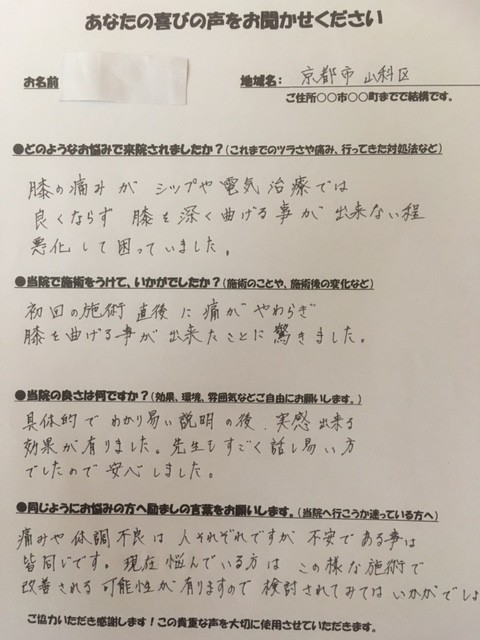 あなたの喜びの声をお聞かせください
お名前
地域名： 京都市 山科区
ご住所〇〇市〇〇町までで結構です。
●どのようなお悩みで来院されましたか？（これまでのツラさや痛み、行ってきた対処法など）
膝の痛みが シップや電気治療では
良くならず 膝を深く曲げる事が出来ない程
悪化して困っていました。
●当院で施術をうけて、いかがでしたか？（施術のことや、施術後の変化など）
初回の施術直後に痛がやわらぎ
膝を曲げる事が出来たことに驚きました。
●当院の良さは何ですか？（効果、環境、雰囲気などご自由にお願いします。）
具体的でわかり易い説明の後、実感出来る
効果が有りました。先生もすごく話し易い方
でしたので安心しました。
●同じようにお悩みの方へ励ましの言葉をお願いします。（当院へ行こうか迷っている方へ）
痛みや体調不良は人それぞれですが 不安である事は
皆同じです。現在悩んでいる方は この様な施術で
改善される可能性が有りますので 検討されてみては いかがでしょ
ご協力いただき感謝します！この貴重な声を大切に使用させていただきます。